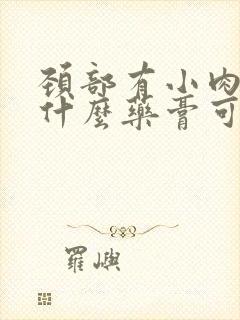 頸部有小肉
什麼藥膏可
羅嶼